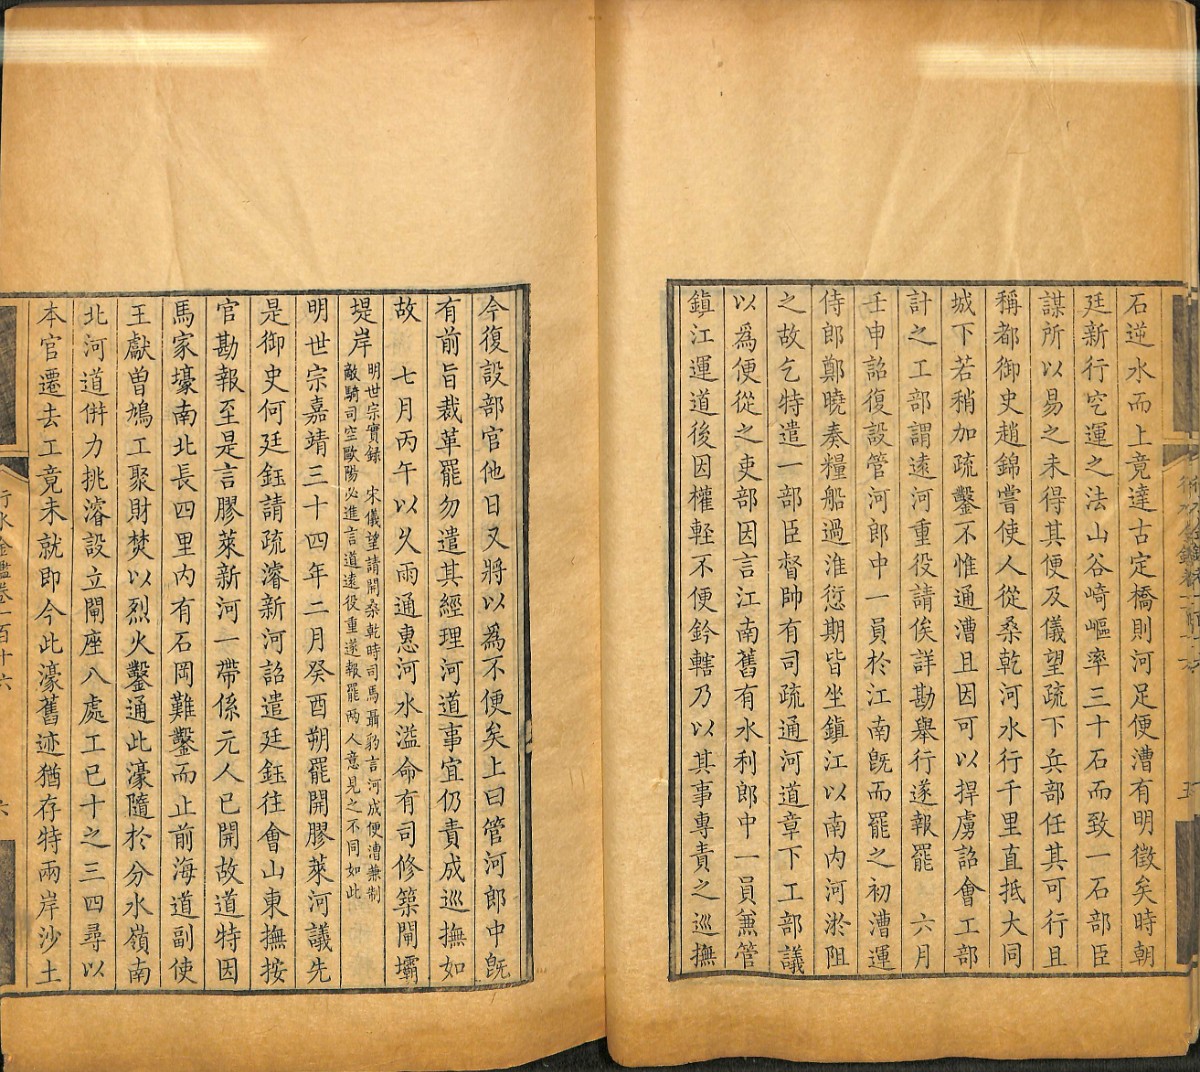 石逆水而上竟達古定橋則河足便漕有明徵矣時朝
廷新行空運之法山谷崎嶇率三十石而致一石部臣
謀所以易之未得其便及儀望疏下兵部任其可行且
稱都御史趙錦嘗使人從桑乾河水行千里直抵大同
城下若稍加疏鑿不惟通漕且因可以捍虜詔會工部
計之工部謂遠河重役請俟詳勘舉行遂報罷　六月
壬申詔復設管河郎中一員於江南旣而罷之初漕運
侍郎鄭曉奏糧船過淮愆期皆坐鎮江以南內河淤阻
之故乞特遣一部臣督帥有司疏通河道章下工部議
以爲便從之吏部因言江南舊有水利郎中一員兼管
鎮江運道後因權輕不便鈐轄乃以其事專責之巡撫
今復設部官他日又將以爲不便矣上曰管河郎中旣
有前旨裁革罷勿遣其經理河道事宜仍責成巡撫如
故　七月丙午以久雨通惠河水溢命有司修築閘壩
堤岸
明世宗實錄　宋儀望請開桑乾時司馬聶豹言河成便漕兼制
敵騎司空歐陽必進言道遠役重遂報罷兩人意見之不同如此
明世宗嘉靖三十四年二月癸酉朔罷開膠萊河議先
是御史何廷鈺請疏濬新河詔遣廷鈺往會山東撫按
官勘報至是言膠萊新河一帶係元人已開故道特因
馬家壕南北長四里內有石岡難鑿而止前海道副使
王獻曽鳩工聚財焚以烈火鑿通此濠隨於分水嶺南
北河道倂力挑濬設立閘座八處工已十之三四尋以
本官遷去工竟未就即今此濠舊迹猶存特兩岸沙土
行水金鑑卷一百十六
六